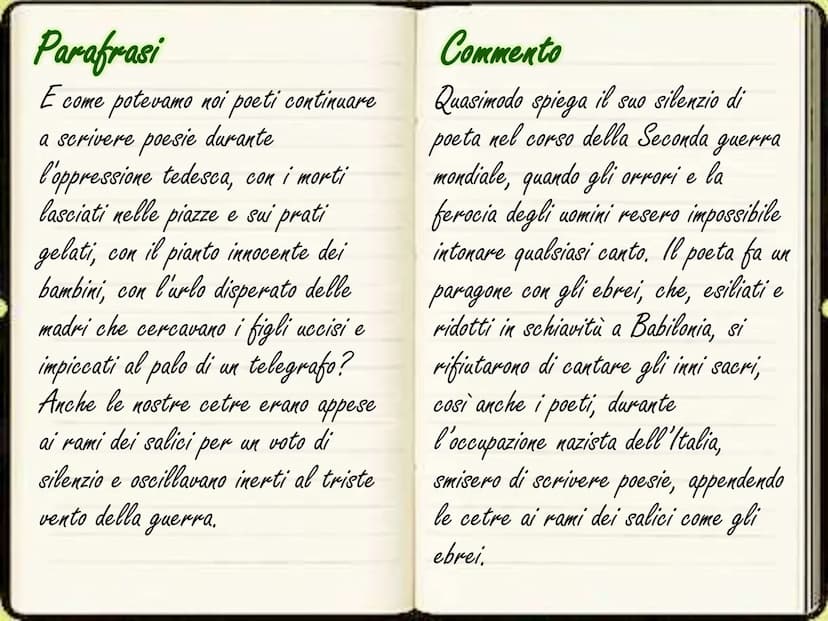 Parafrasi
E come potevamo noi poeti continuare
a scrivere poesie durante
l'oppressione tedesca, con i morti
lasciati nelle piazze e sui prati
gelati, con il pianto innocente dei
bambini, con l'urlo disperato delle
madri che cercavano i figli uccisi e
impiccati al palo di un telegrafo?
Anche le nostre cetre erano appese
ai rami dei salici per un voto di
silenzio e oscillavano inerti al triste
vento della guerra.
Commento
Quasimodo spiega il suo silenzio di
poeta nel corso della Seconda guerra
mondiale, quando gli orrori e la
ferocia degli uomini resero impossibile
intonare qualsiasi canto. Il poeta fa un
paragone con gli ebrei, che, esiliati e
ridotti in schiavitù a Babilonia, si
rifiutarono di cantare gli inni sacri,
così anche i poeti, durante
l'occupazione nazista dell'Italia,
smisero di scrivere poesie, appendendo
le cetre ai rami dei salici come gli
ebrei.